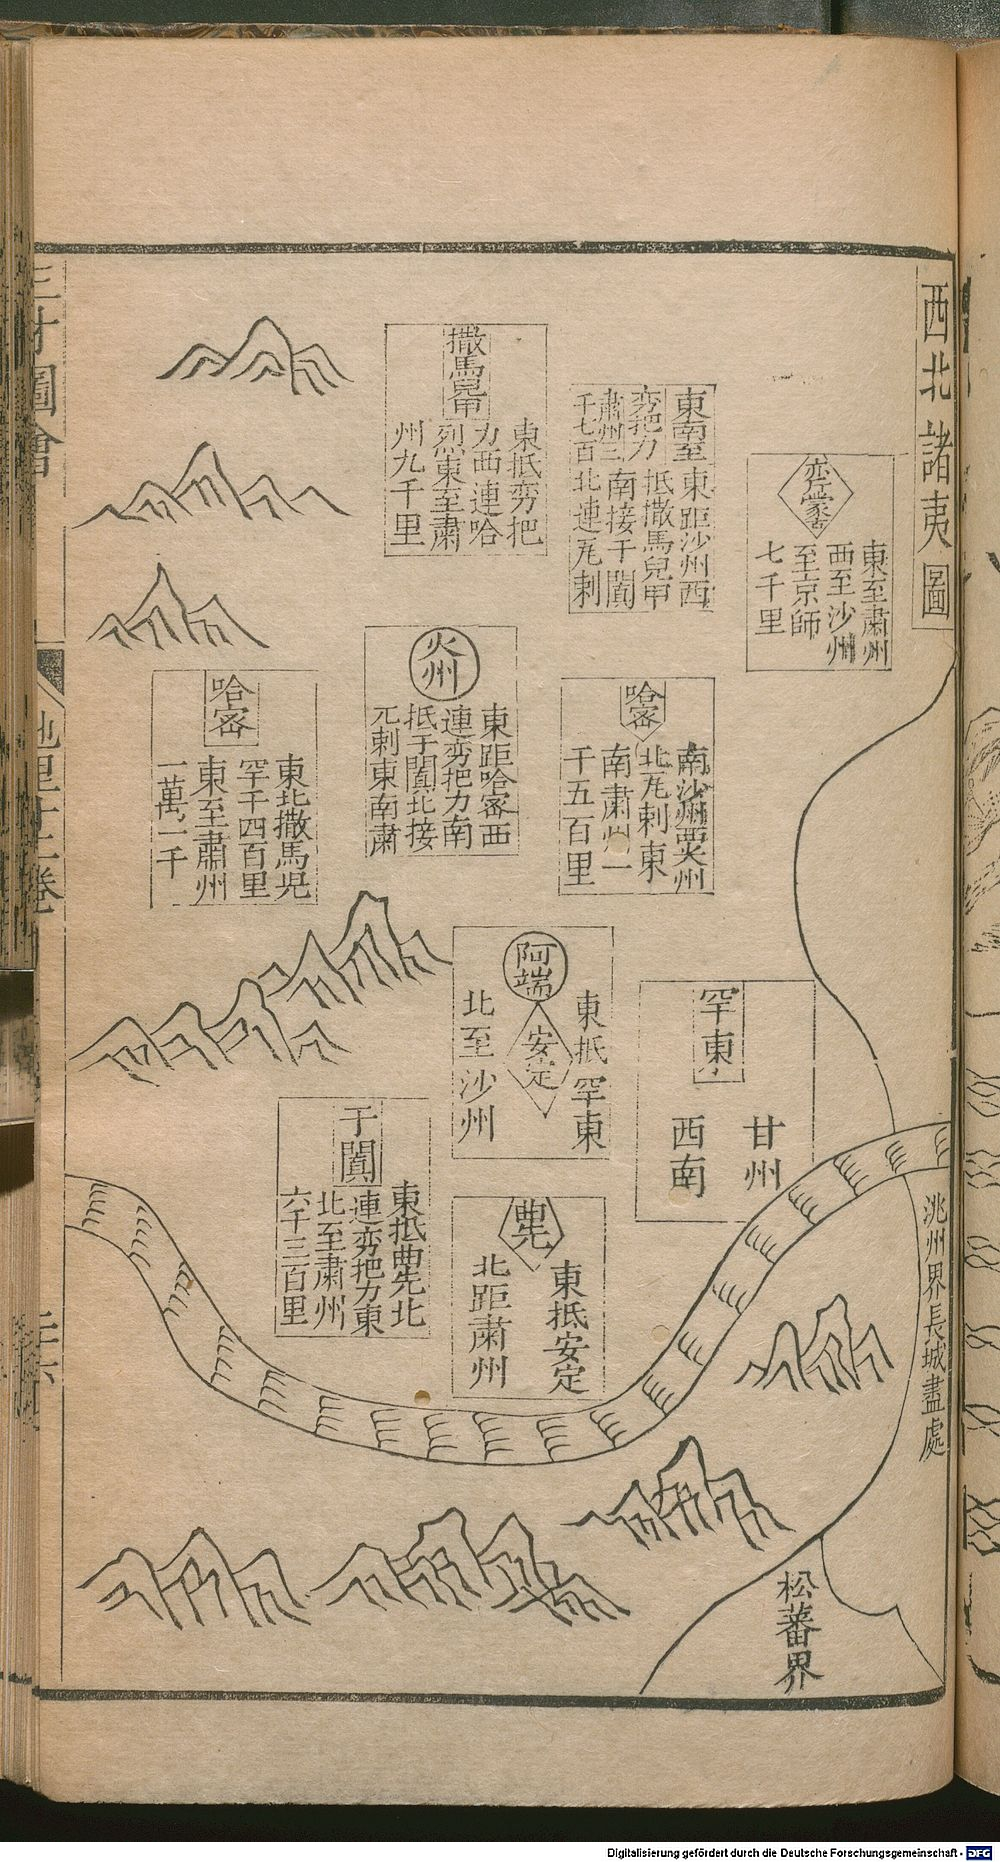 西北諸夷圖
赤斤蒙古
東至肅州
西至沙州
至京師
七千里
東南至
東距沙州西
夯把力
抵撒馬兒甲
肅州三
南接于闐
千七百
北連瓦剌
撒馬兒甲
東抵夯把
力西連哈
烈東至肅
州九千里
哈密
南沙州西火州
北瓦剌東
南肅州一
千五百里
火州
東距哈密西
連夯把力南
抵于闐北接
瓦剌東南肅
哈密
東北撒馬兒
罕千四百里
東至肅州
一萬一千
罕東
甘州
西南
阿端
安定
東抵罕東
北至沙州
曲先
東抵安定
北距肅州
于闐
東抵曲先北
連夯把力東
北至肅州
六千三百里
洮州界長城盡處
松蕃界
三才圖會
地里十三卷
Digitalisierung gefördert durch die Deutsche Forschungsgemeinschaft - DFG